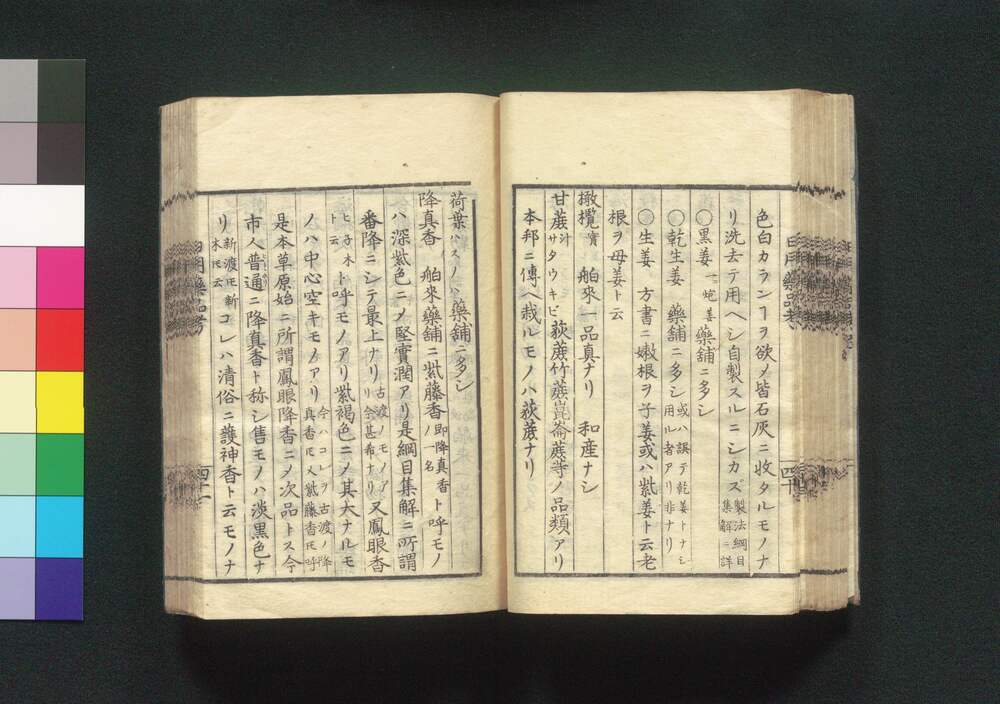 色白カランヿヲ欲メ皆石灰ニ收タルモノナ
リ洗去テ用ヘシ自製スルニシカズ 製法綱目集解ニ詳
〇黒姜 一炮姜 藥舗ニ多シ
〇乾生姜 藥舗ニ多シ 或ハ誤テ乾姜トナシ用ル者アリ非ナリ
〇生姜 方書ニ嫩根ヲ子姜或ハ紫姜ト云老
根ヲ母姜ト云
橄欖 實 舶來一品真ナリ 和産ナシ
甘蔗 汁 サタウキビ 荻蔗竹蔗崑崙蔗等ノ品類アリ
本邦ニ傳ヘ栽ルモノハ荻蔗ナリ
荷葉 ハスノハ 藥舗ニ多シ
降真香 舶來藥舗ニ紫藤香 即降真香ノ一名 ト呼モノ
ハ深紫色ニメ堅實潤アリ是綱目集解ニ所謂
番降ニシテ最上ナリ 古渡ノモノアリ今甚希ナリ 又鳳眼香
ヒ子木ト云 ト呼モノアリ紫褐色ニメ其大ナルモ
ノハ中心空キモノアリ 今ハコレヲ古渡ノ降真香圧又紫藤香圧呼
是本草原始ニ所謂鳳眼降香ニメ次品トス今
市人普通ニ降真香ト称シ售モノハ淡黒色ナ
リ 新渡圧新木圧云 コレハ清俗ニ護神香ト云モノナ
日用藥品考
四十
四十一